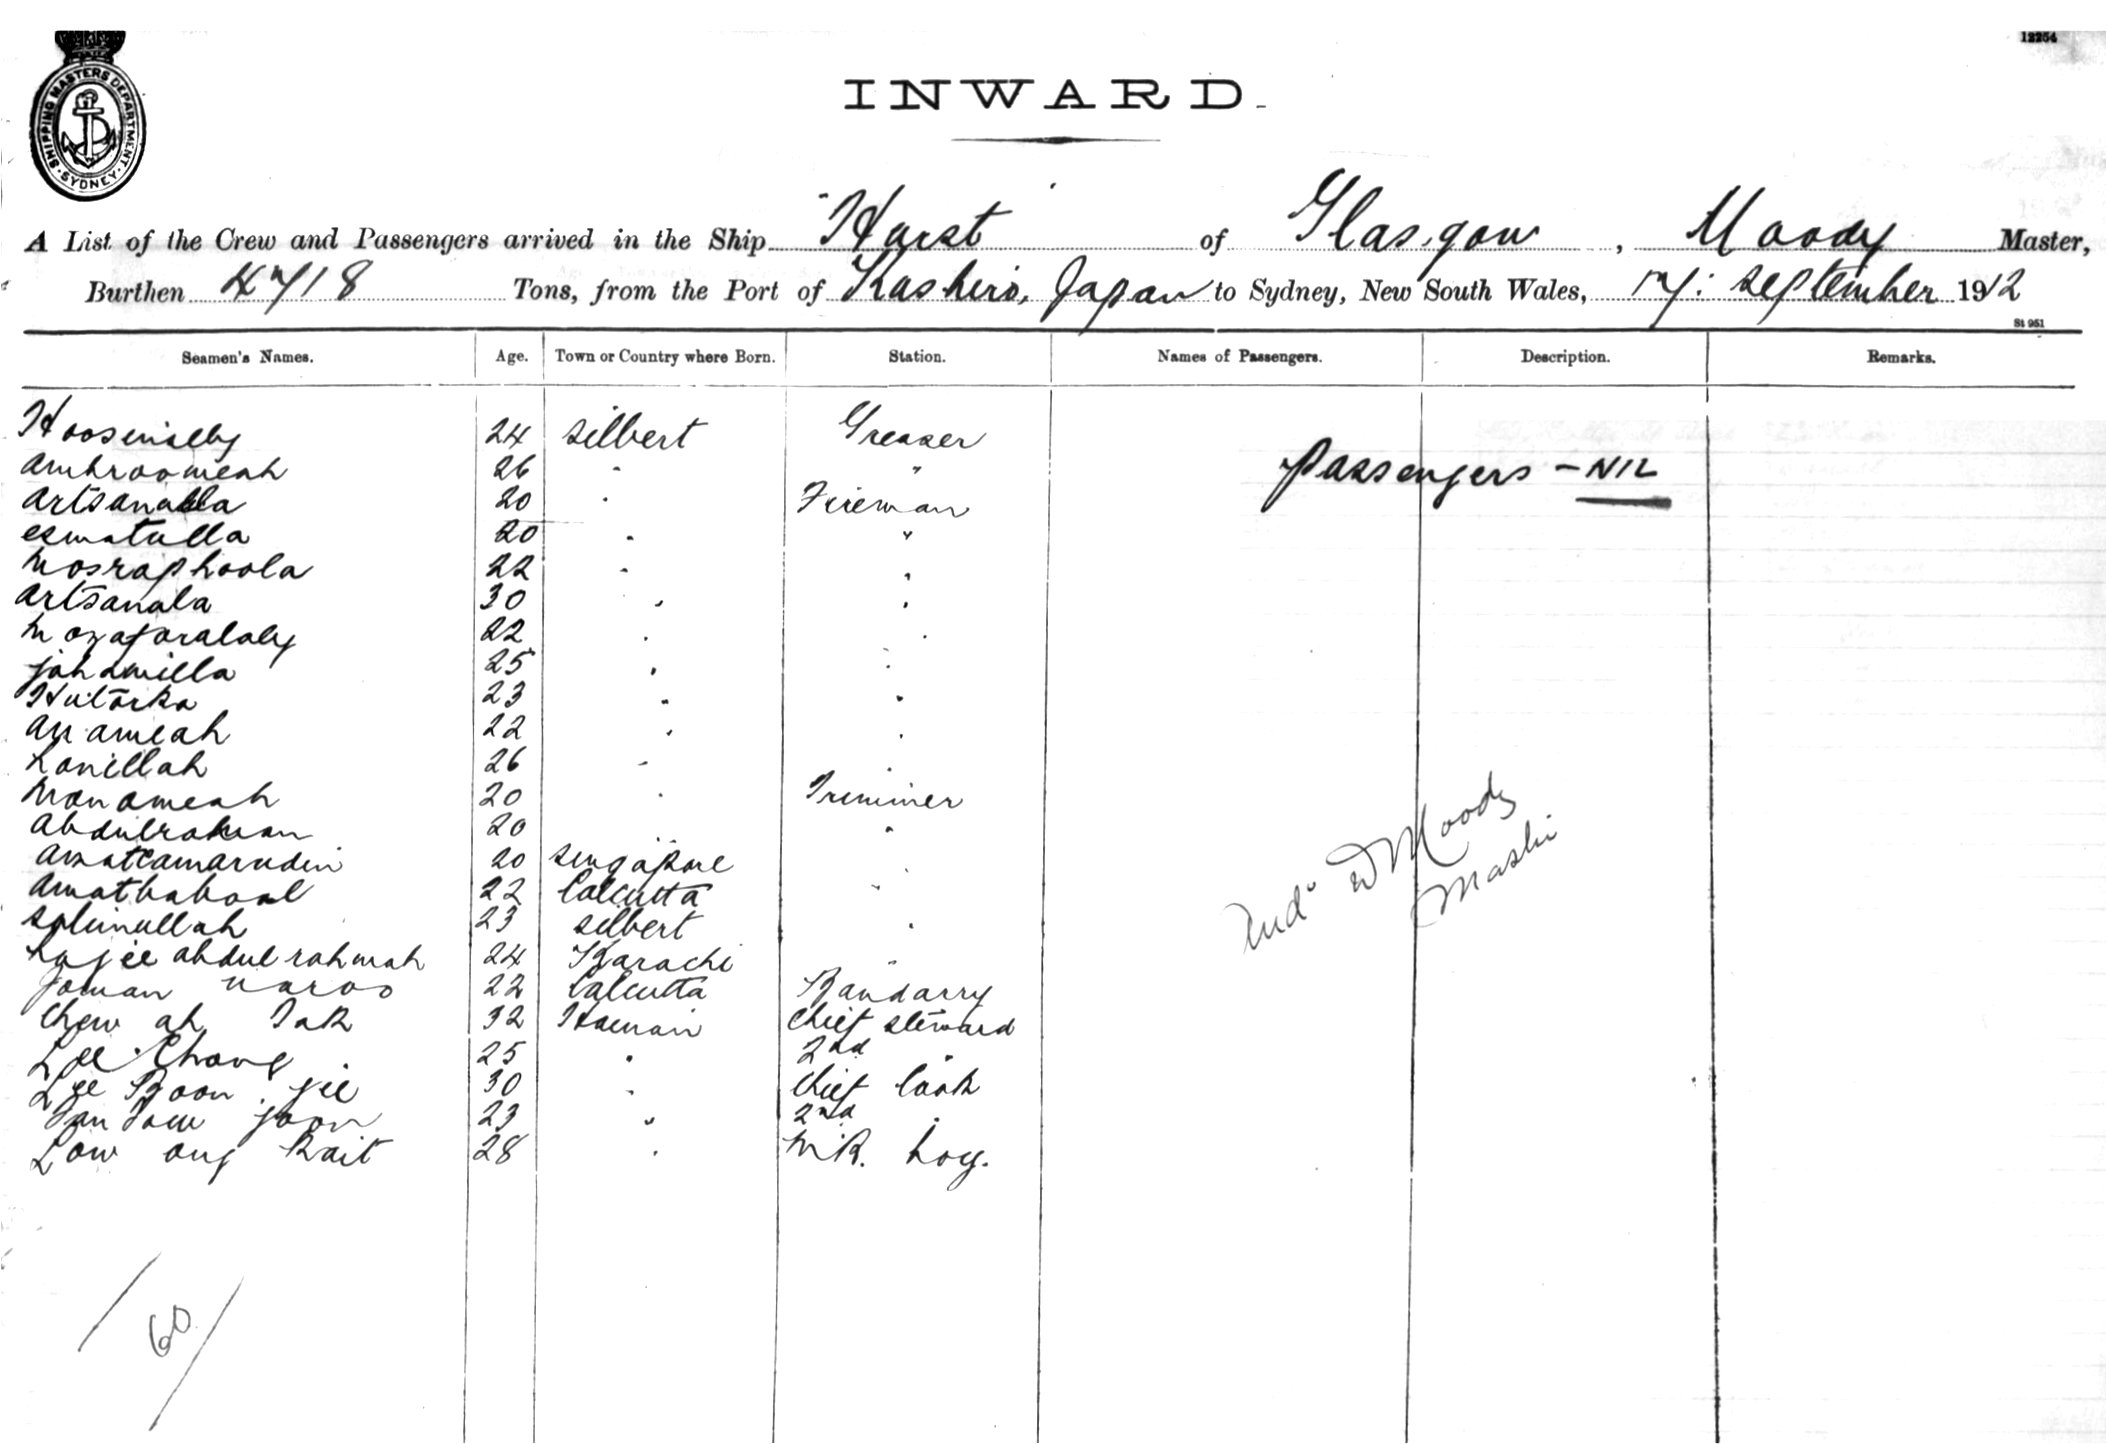 12254
SHIPPING MASTERS DEPARTMENT. SYDNEY.
INWARD.
A List of the Crew and Passengers arrived in the Ship Hurst of Glasgow, Moody Master,
Burthen 4718 Tons, from the Port of Kushiro, Japan to Sydney, New South Wales, 17: September 1912
St 951
Seamen's Names. Age. Town or Country where Born. Station. Names of Passengers. Description. Remarks.
24 Silbert Greaser
Amhroomeah 26 " "
Passengers - NIL
Artsanalla 20 " Fireman
esmatulla 20 " "
mosraphoola 22 " "
Artsanala 30 " "
mozaforalaly 22 " "
25 " "
23 " "
22 " "
26 " "
monomeah 20 " Trimmer
Abdulrahman 20 " "
20 Singapore "
22 Calcutta "
Solimullah 23 Silbert "
Hajee Abdul rahmah 24 Karachi "
Joman naroo 22 Calcutta Bandarry
Chew ah Tak 32 Hainan Chief Steward
Lee Chong 25 " 2nd "
Lee Boon Jee 30 " Chief Cook
23 " 2nd "
Low ong Kait 28 " M.R. boy.
W Moody
Master
60